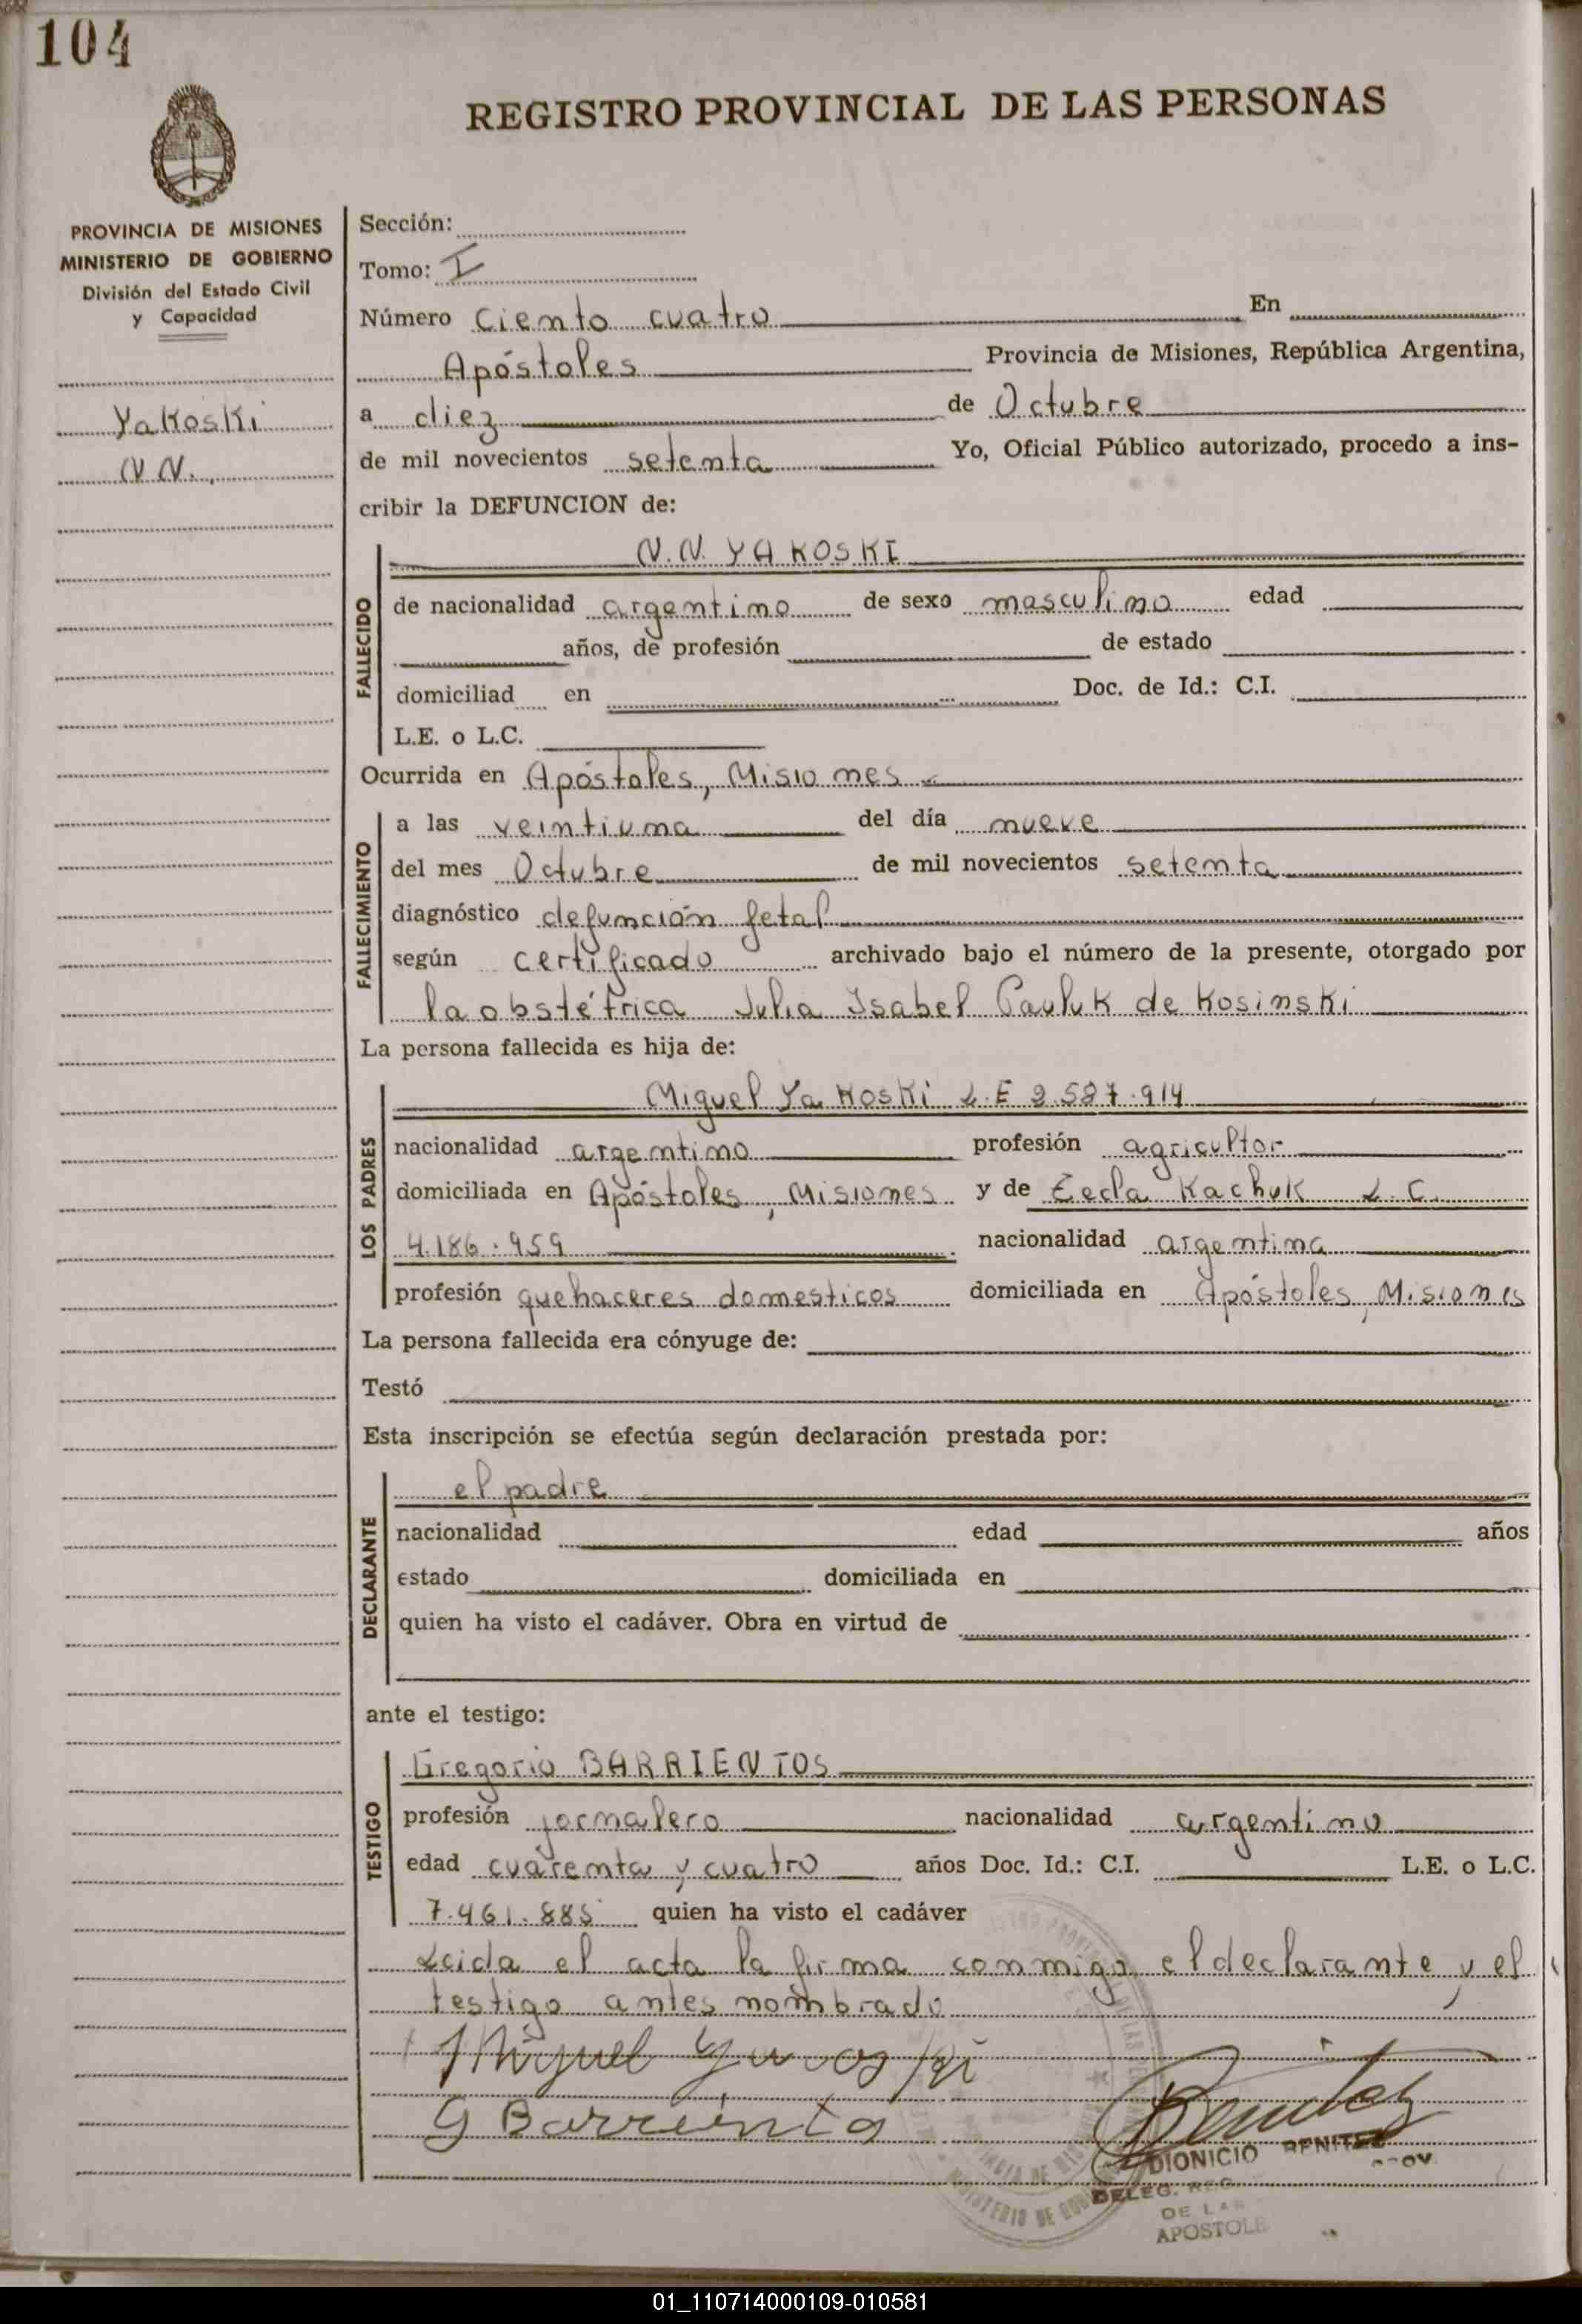 104
REGISTRO PROVINCIAL DE LAS PERSONAS
PROVINCIA DE MISIONES
MINISTERIO DE GOBIERNO
División del Estado Civil
y Capacidad
Yakoski
N.N.
Sección:
Tomo: I
Número Ciento cuatro En
Apóstoles Provincia de Misiones, República Argentina,
a diez de Octubre
de mil novecientos setenta Yo, Oficial Público autorizado, procedo a ins-
cribir la DEFUNCION de:
N.N. YAKOSKI
FALLECIDO
de nacionalidad argentino de sexo masculino edad
años, de profesión de estado
domiciliad en Doc. de Id.: C.I.
L.E. o L.C.
Ocurrida en Apóstoles, Misiones
FALLECIMIENTO
a las veintiuna del día nueve
del mes Octubre de mil novecientos setenta
diagnóstico defunción fetal
según certificado archivado bajo el número de la presente, otorgado por
la obstétrica Julia Isabel Pauluk de Kosinski
La persona fallecida es hija de:
LOS PADRES
Miguel Yakoski L.E
nacionalidad argentino profesión agricultor
domiciliada en Apóstoles, Misiones y de Kachuk L.C.
4.186.959 nacionalidad argentina
profesión quehaceres domesticos domiciliada en Apóstoles, Misiones
La persona fallecida era cónyuge de:
Testó
Esta inscripción se efectúa según declaración prestada por:
DECLARANTE
el padre
nacionalidad edad años
estado domiciliada en
quien ha visto el cadáver. Obra en virtud de
ante el testigo:
TESTIGO
Gregorio BARRIENTOS
profesión jornalero nacionalidad argentino
edad cuarenta y cuatro años Doc. Id.: C.I. L.E. o L.C.
7.461.885 quien ha visto el cadáver
Leida el acta la firma conmigo el declarante y el
testigo antes nombrado
Miguel
G Barriento
Benitez
DIONICIO BENITEZ
DELEG. REG.
DE LAS
APOSTOLE
01_110714000109-010581